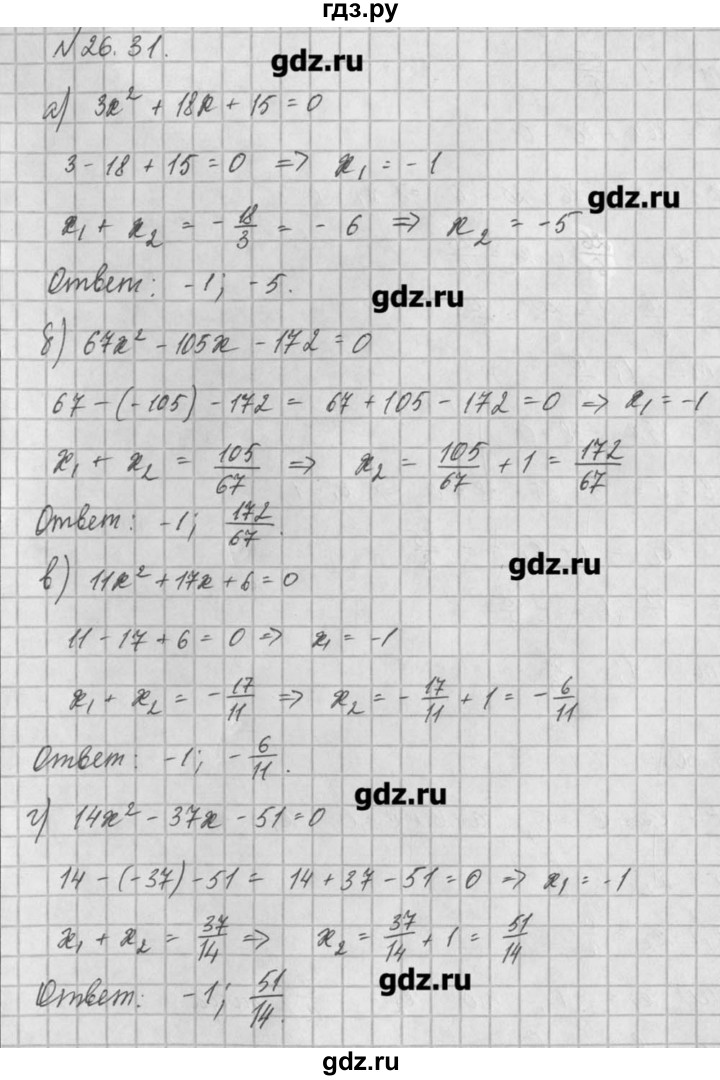 гдз.ру
№ 26.31.
gdz.ru
а) 3x² + 18x + 15 = 0
3 - 18 + 15 = 0 => x₁ = -1
gdz.ru
x₁ + x₂ = -18/3 = -6 => x₂ = -5
Ответ: -1; -5.
gdz.ru
б) 67x² - 105x - 172 = 0
67 - (-105) - 172 = 67 + 105 - 172 = 0 => x₁ = -1
x₁ + x₂ = 105/67 => x₂ = 105/67 + 1 = 172/67
Ответ: -1; 172/67.
gdz.ru
в) 11x² + 17x + 6 = 0
11 - 17 + 6 = 0 => x₁ = -1
x₁ + x₂ = -17/11 => x₂ = -17/11 + 1 = -6/11
Ответ: -1; -6/11.
gdz.ru
г) 14x² - 37x - 51 = 0
14 - (-37) - 51 = 14 + 37 - 51 = 0 => x₁ = -1
x₁ + x₂ = 37/14 => x₂ = 37/14 + 1 = 51/14
gdz.ru
Ответ: -1; 51/14.
gdz.ru